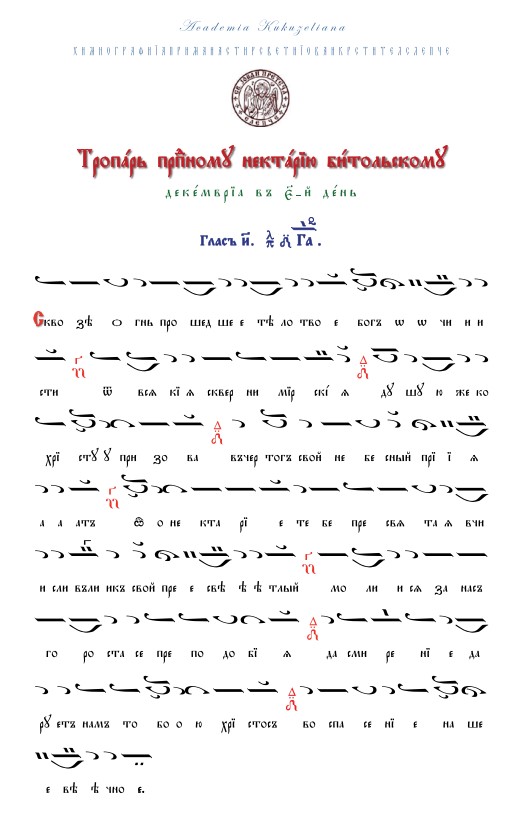 Academia Kukuzeliana
ХИМНОГРАФИЇАПРИМАНАСТИРСВЕТИЇОВАНКРСТИТЕЛСЛЕПЧЕ
Тропа́рь прпⷣномꙋ некта́рїю би́тольскомꙋ
деке́мврїа въ є҃-й де́нь
Гласъ и҃. Га .
Скво зѣ о гнь про шед ше е тѣ ло тво е богъ ѡ ѡ чи и и
сти ѿ вся кї я сквер ни мїр скі я дꙋ шꙋ ю же ко
хрї стꙋ ꙋ при зо ва въчер тогъ свой не бе сный прї ї я
а а атъ ѳ о не кта рї е те бе пре свя та я вчи
и сли въли икъ свой пре е свѣ ѣ ѣ тлый мо ли и ся за насъ
го ро ста се пре по до бї я да сми ре нї е да
рꙋ етъ намъ то бо о ю хрї стосъ во спа се нї е на ше
е вѣ ѣ чно е.